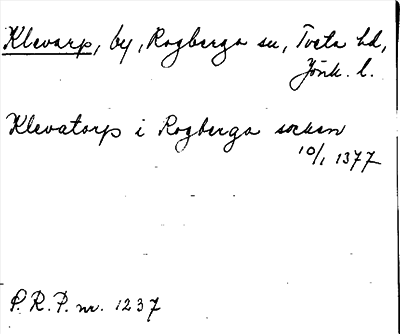 Klevarp, by, Rogberga sn, Tveta hd,
Jönk. l.
Klevatorp i Rogberga socken
10/1 1377
P.R.P. nr. 1237